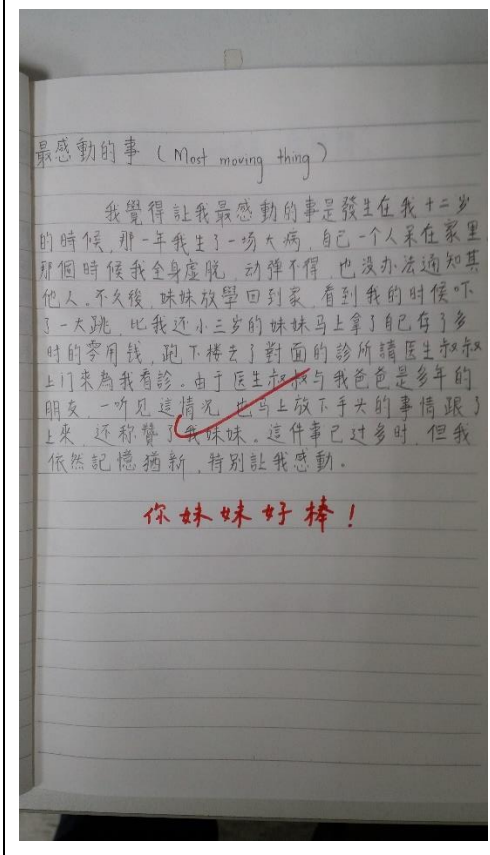 最感動的事 (Most moving thing)
我覺得讓我最感動的事是發生在我十二岁
的時候,那一年我生了一场大病,自己一个人呆在家里,
那個時候我全身虛脫,动弹不得,也没办法通知其
他人。不久後,妹妹放學回到家,看到我的時候吓
了一大跳,比我还小三岁的妹妹马上拿了自己存了多
时的零用钱,跑下楼去了對面的診所請医生叔叔
上门來為我看診。由于医生叔叔与我爸爸是多年的
朋友,一听见這情况,也马上放下手头的事情跟了
上來,还称赞了我妹妹。這件事已过多时,但我
依然記憶猶新,特别讓我感動。
你妹妹好棒!